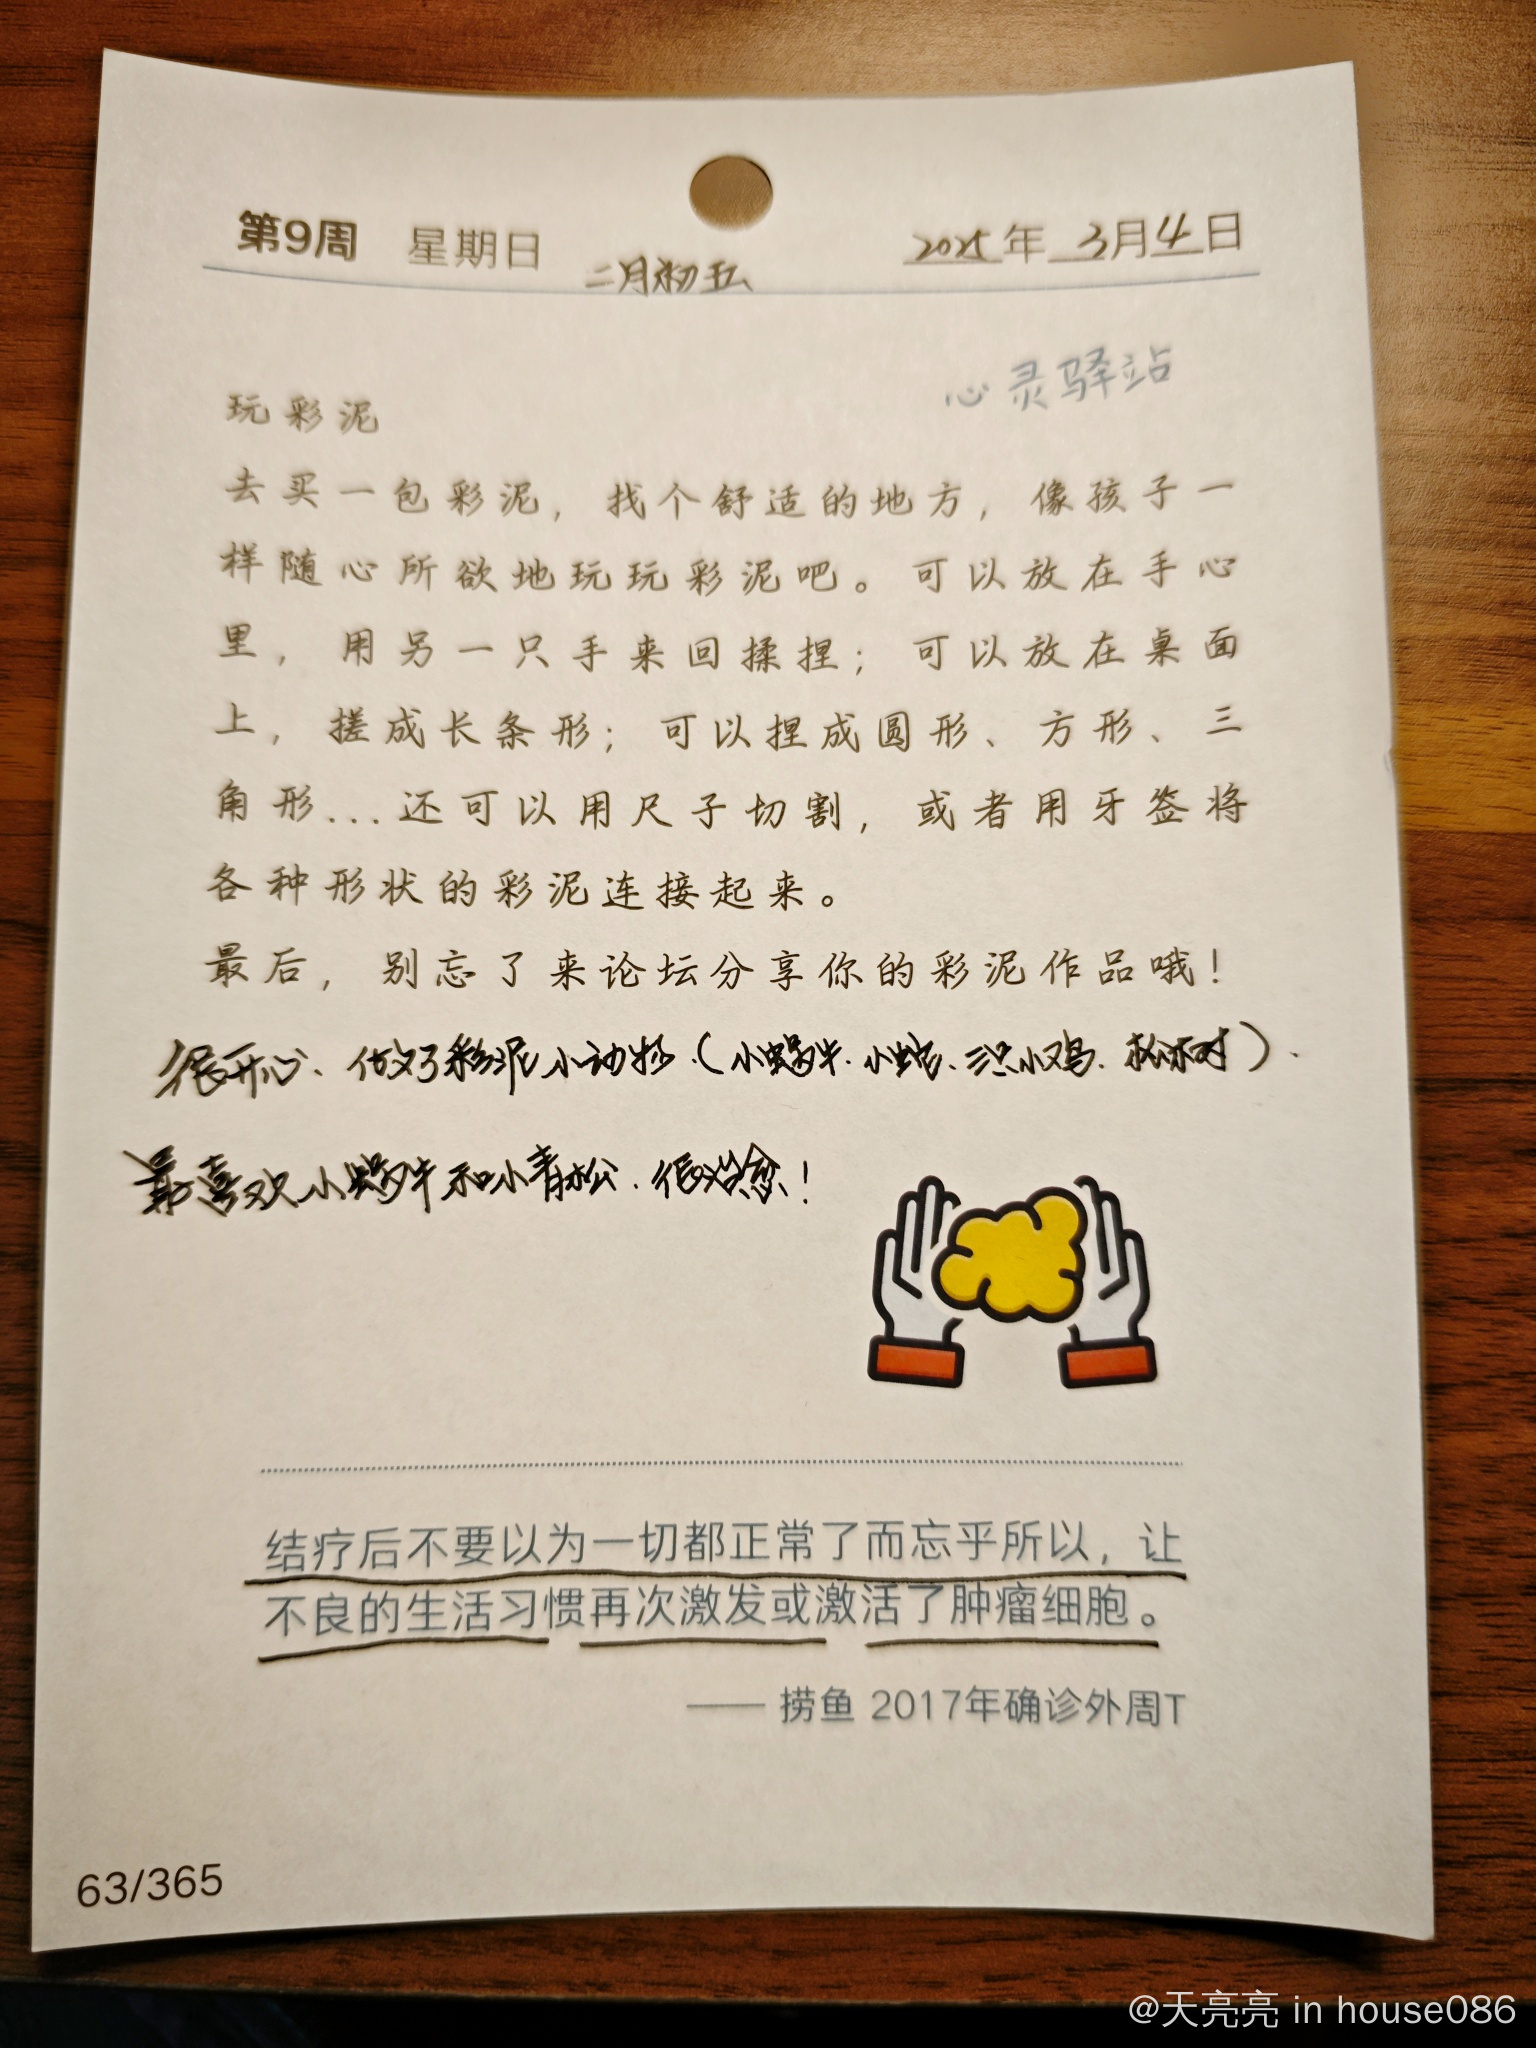 第9周 星期日 二月初五 2025年3月4日
心灵驿站
玩彩泥
去买一包彩泥，找个舒适的地方，像孩子一
样随心所欲地玩玩彩泥吧。可以放在手心
里，用另一只手来回揉捏；可以放在桌面
上，搓成长条形；可以捏成圆形、方形、三
角形...还可以用尺子切割，或者用牙签将
各种形状的彩泥连接起来。
最后，别忘了来论坛分享你的彩泥作品哦！
很开心、做了彩泥小动物（小蜗牛、小蛇、三只小鸡、松树）.
最喜欢小蜗牛和小青松.很治愈！
结疗后不要以为一切都正常了而忘乎所以，让
不良的生活习惯再次激发或激活了肿瘤细胞。
—— 捞鱼 2017年确诊外周T
63/365
@天亮亮 in house086